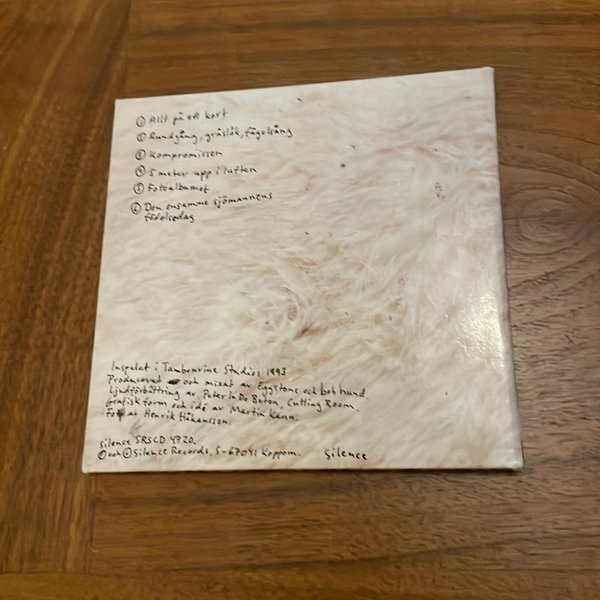 ① Allt på ett kort
② Rundgång, gräslök, fågelsång
③ Kompromissen
④ 5 meter upp i luften
⑤ Fotoalbumet
⑥ Den ensamme sjömannens
födelsedag
Inspelat i Tambourine Studios 1993
Producerat och mixat av Eggstone och bob hund.
Ljudförbättring av Peter In De Betou, Cutting Room.
Grafisk form och idé av Martin Kann.
Foto av Henrik Håkansson.
Silence SRSCD 4720.
Ⓟ och © Silence Records, S-67041 Koppom. Silence